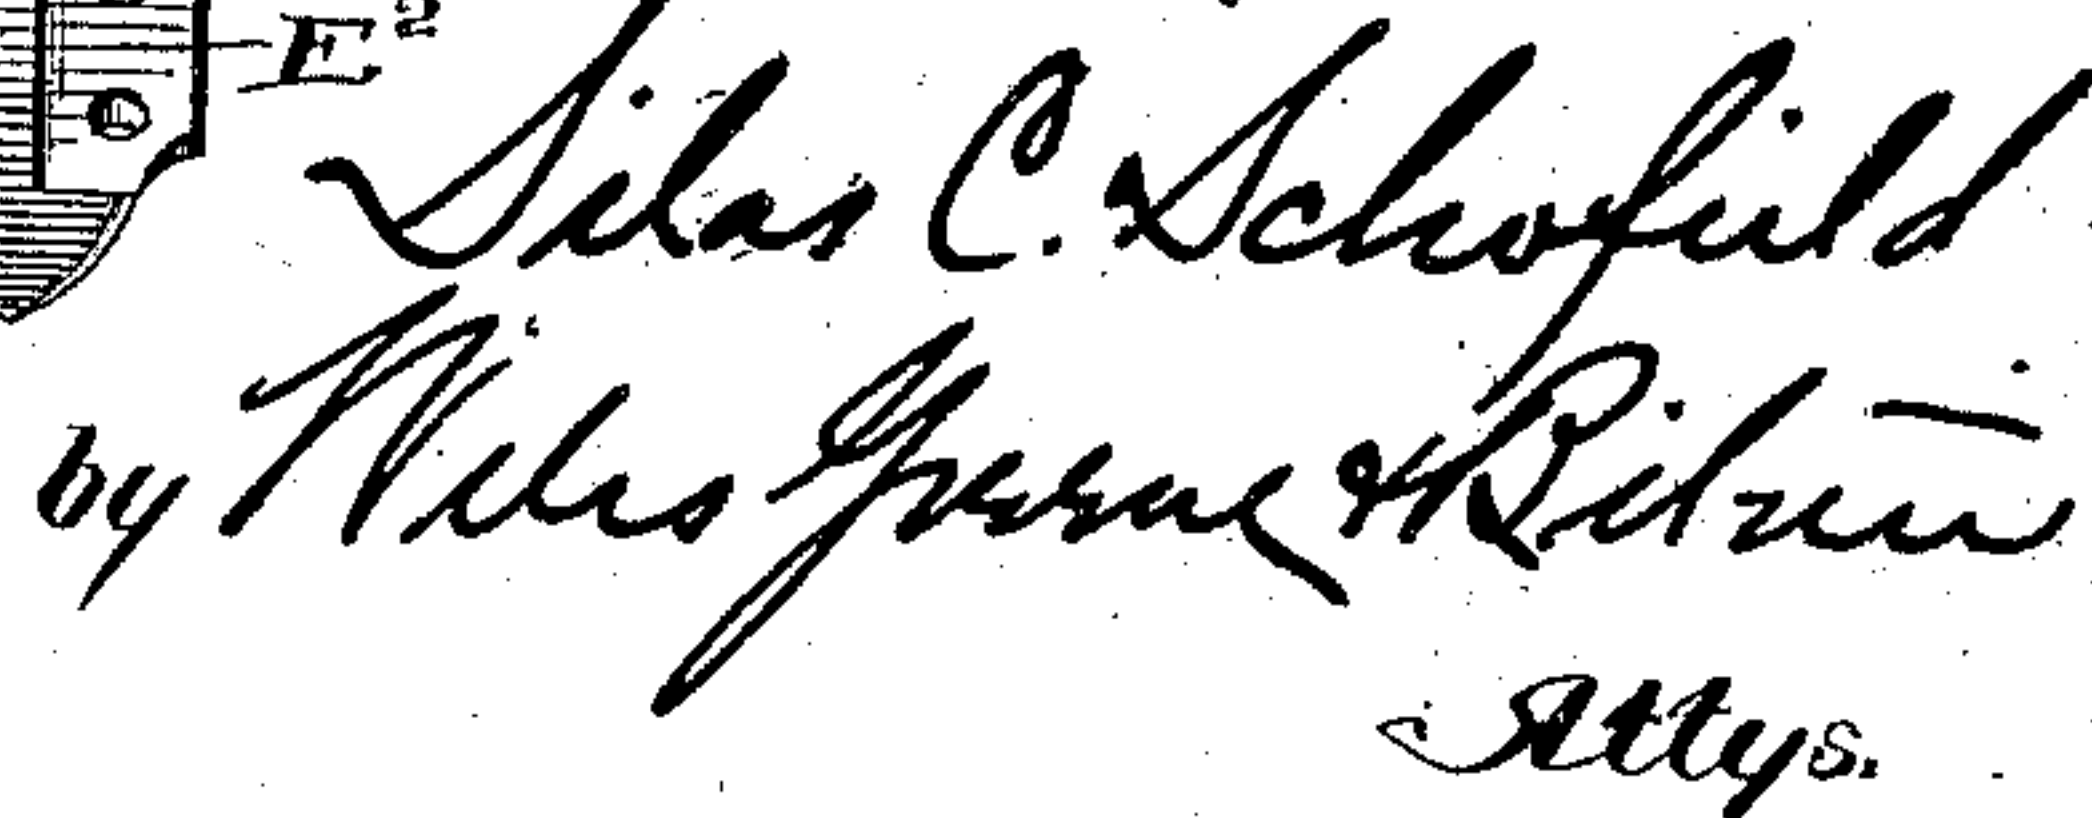 E²
Silas C. Schofield
by Wiles Greene & Bitner
Attys.